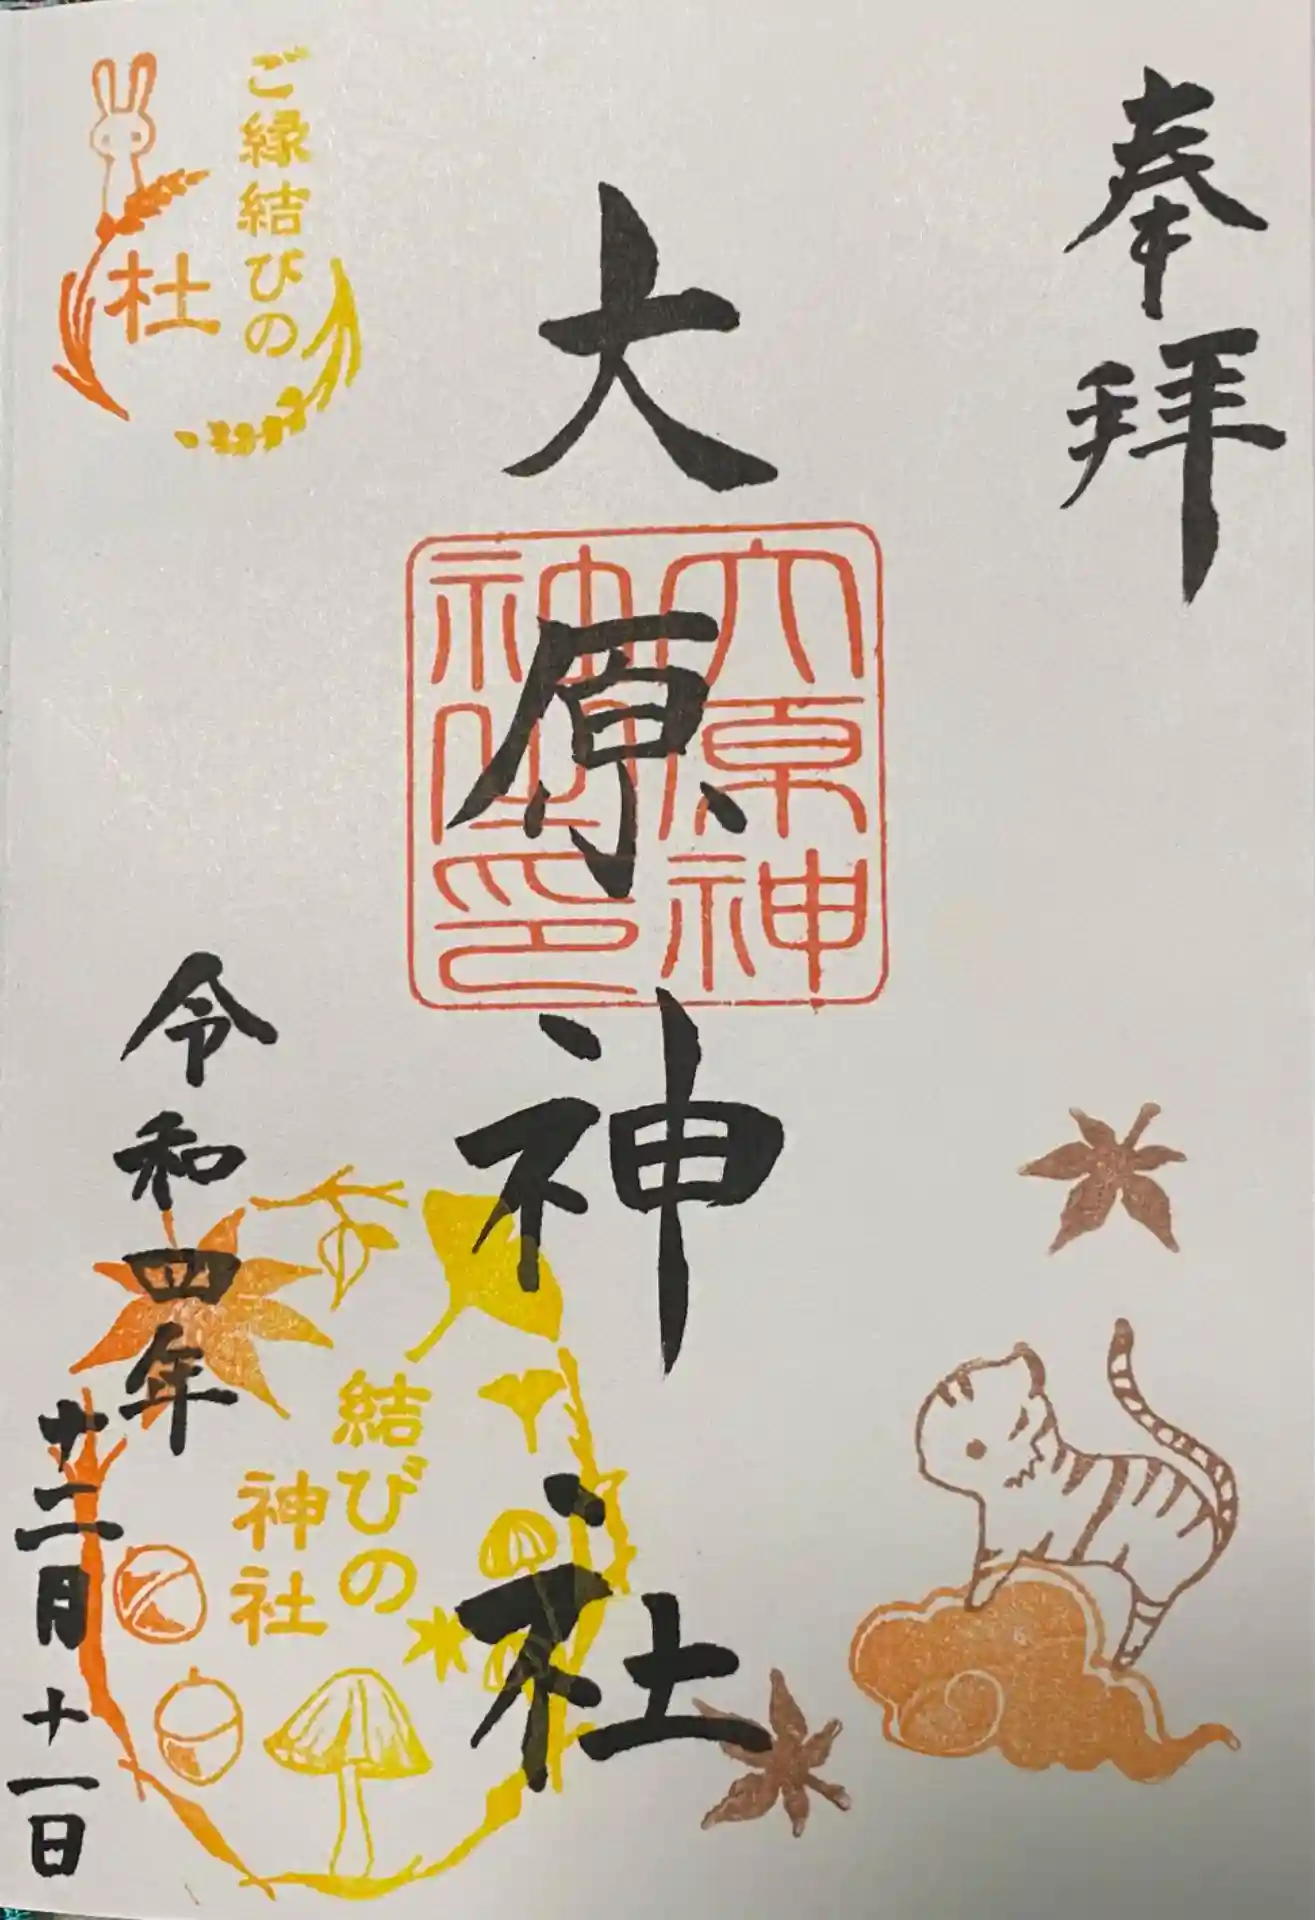 奉拝
大原神社
大原神
神社印
令和四年
十二月十一日
ご縁結びの
杜
結びの
神社